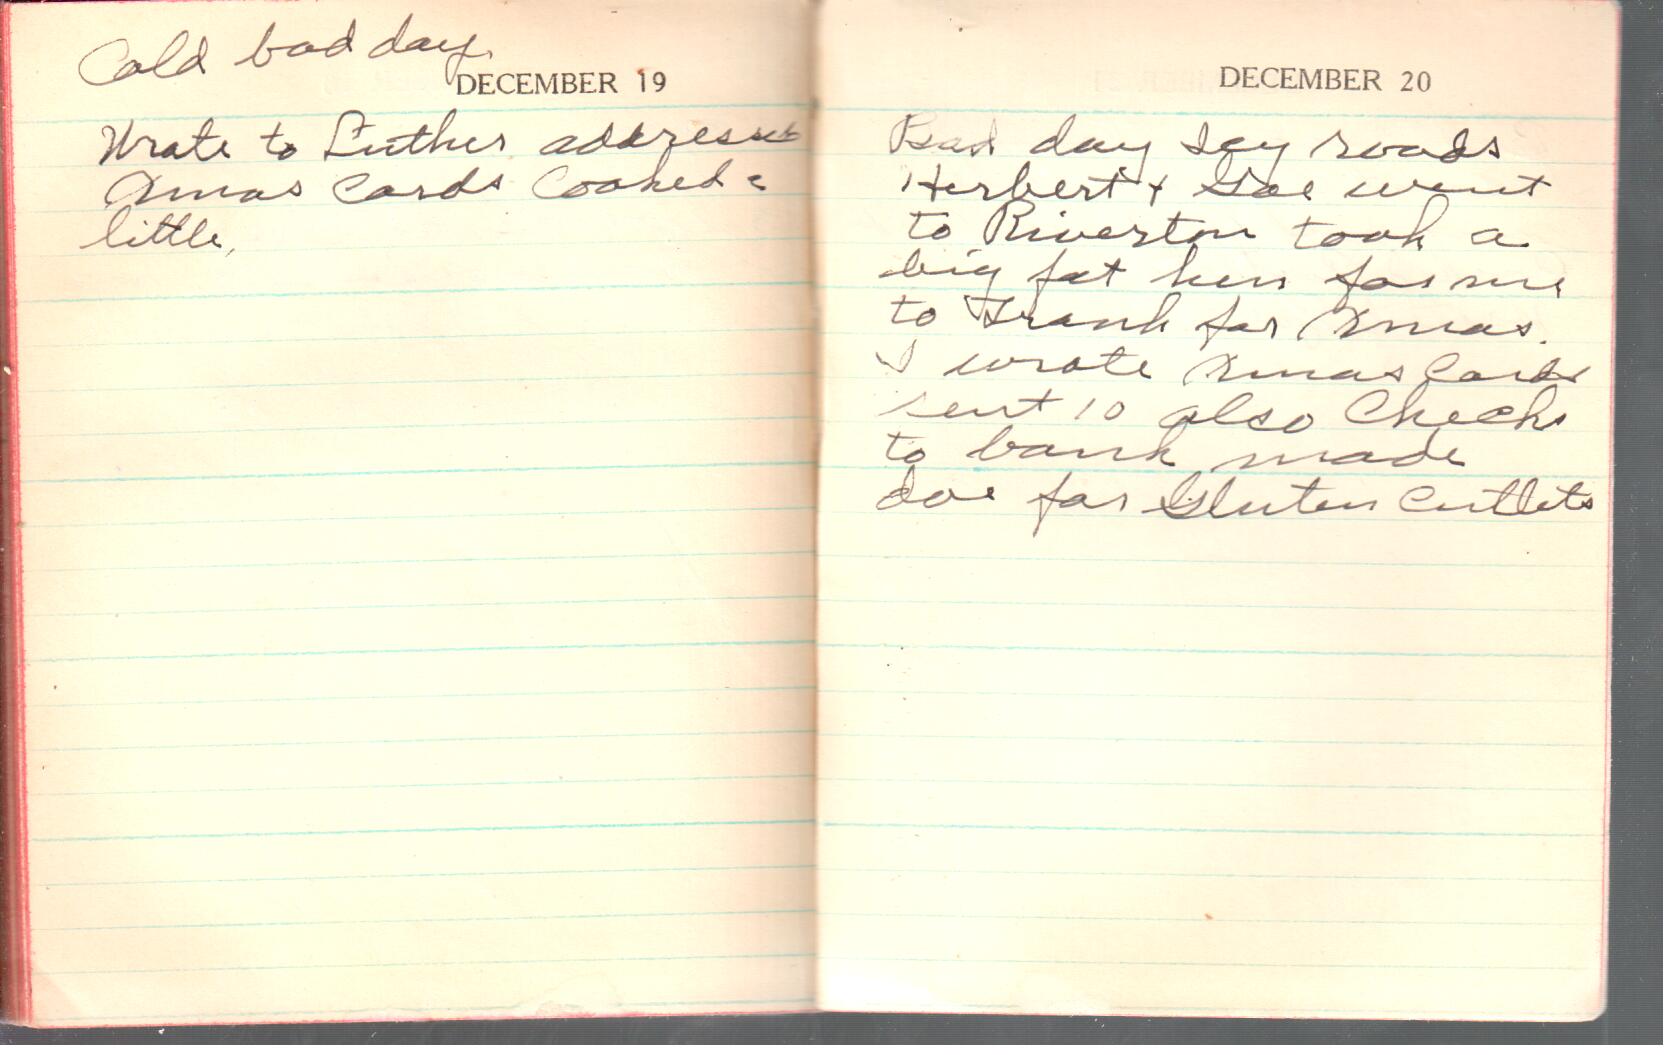 Cold bad day.
DECEMBER 19
Wrote to Luther addressed
Xmas Cards Cooked a
little,
DECEMBER 20
Bad day Icy roads
Herbert + went
to Riverton took a
big fat hen for me
to Frank for Xmas.
I wrote Xmas Cards
sent 10 also Checks
to bank made
doe for Gluten Cutlets